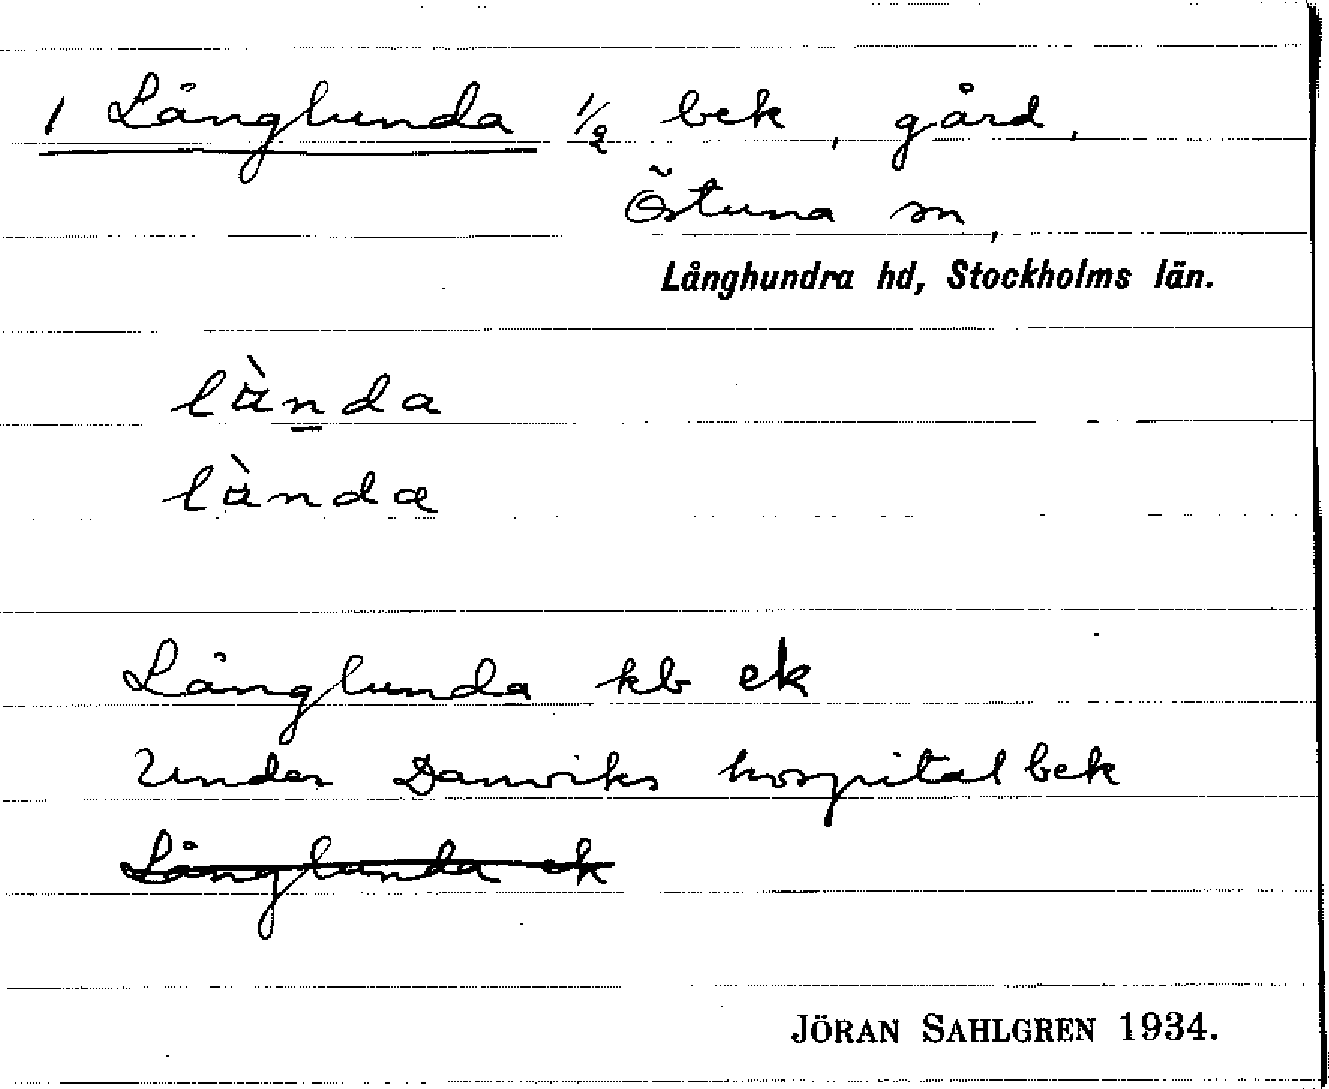 1 Långlunda ½ bek, gård,
Östuna sn,
Långhundra hd, Stockholms län.
lànda
lànda
Långlunda kb ek
Under Danviks hospital bek
Långlunda ek
JÖRAN SAHLGREN 1934.